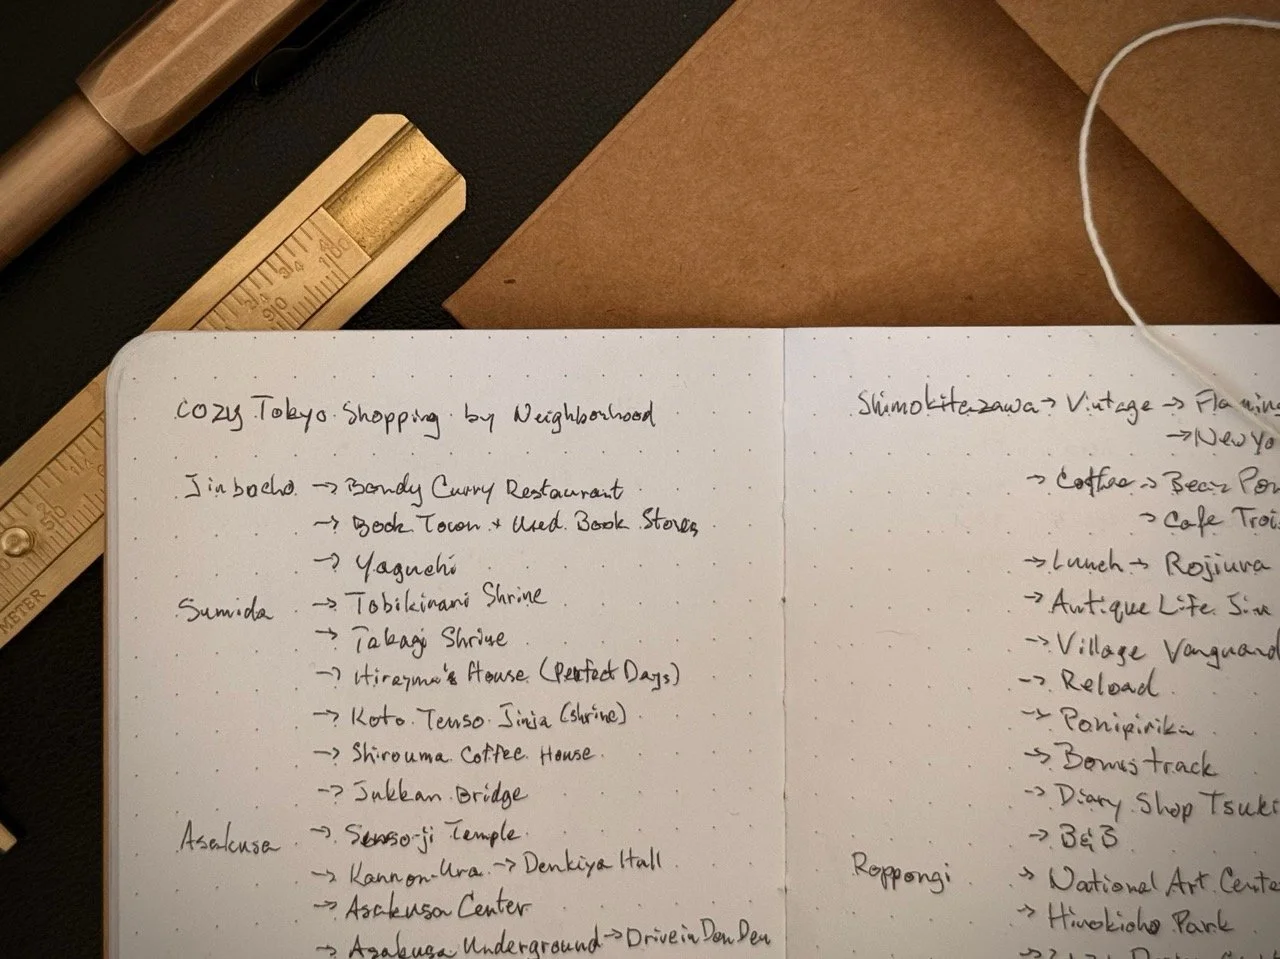 Cozy Tokyo Shopping by Neighborhood
Jinbocho → Bondy Curry Restaurant
→ Book Town + Used Book Stores
→ Yaguchi
Sumida → Tobikinari Shrine
→ Takagi Shrine
→ Hirayama's House (Perfect Days)
→ Koto Tenso Jinja (shrine)
→ Shirouma Coffee House
→ Jukkan Bridge
Asakusa → Senso-ji Temple
→ Kannon-Ura → Denkiya Hall
→ Asakusa Center
→ Asakusa Underground → Drivein Den Den
Shimokitazawa → Vintage → Flamin
→ New Yo
→ Coffee → Bear Pon
→ Cafe Troi
→ Lunch → Rojiura
→ Antique Life Jin
→ Village Vanguard
→ Reload
→ Ponipirika
→ Bonus track
→ Diary Shop Tsuki
→ B&B
Roppongi → National Art Cente
→ Hinokicho Park
METER
50
90
100